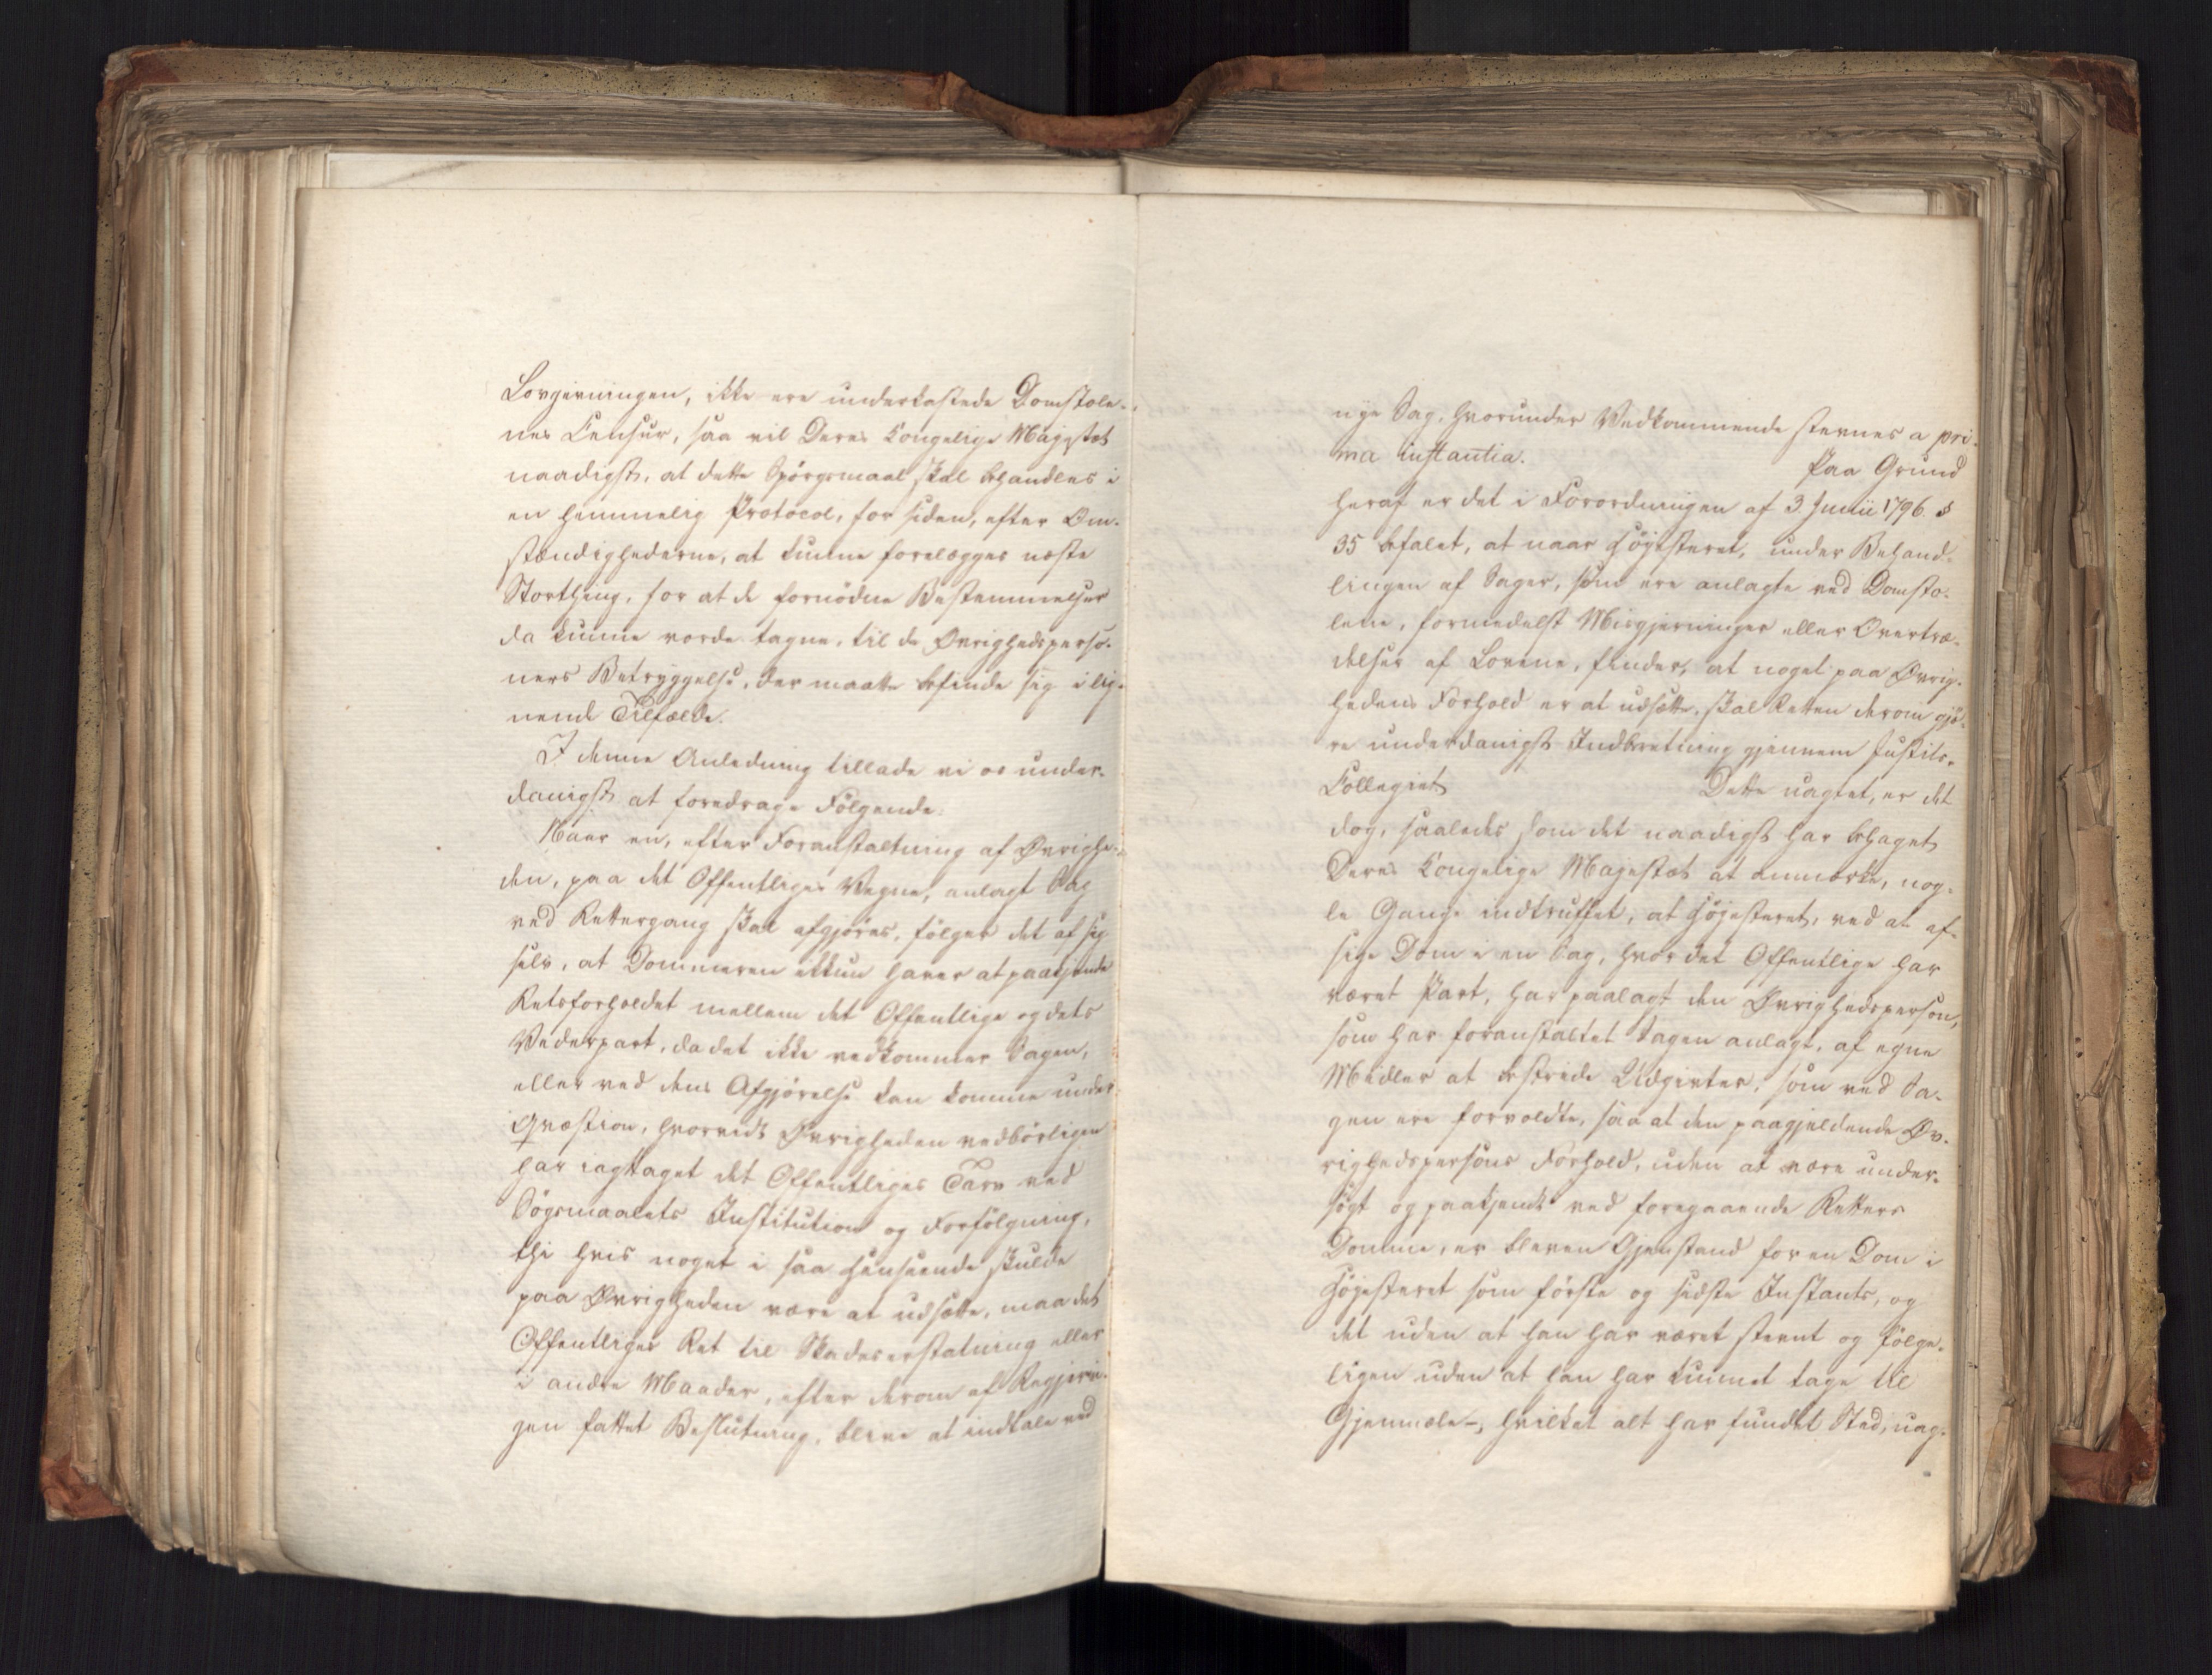 Lovgivningen, ikke ere underkastede Domstole-
nes Censur, saa vil Deres Kongelige Majestæt
naadigst, at dette Spörgsmaal skal behandles i
en hemmelig Protocol, for siden, efter Om-
stændighederne, at kunne forelægges næste
Storthing, for at de fornödne Bestemmelser
da kunne vorde tagne, til de Øvrighedsperso-
ners Betryggelse, der maatte befinde sig i lig-
nende Tilfælde.
I denne Anledning tillade vi os under-
danigst at foredrage Fölgende:
Naar en, efter Foranstaltning af Øvrighe-
den, paa det Offentliges Vegne, anlagt Sag
ved Rettergang skal afgjöres, fölger det af sig
selv, at Dommeren ikkun haver at paakjende
Retsforholdet mellem det Offentlige og dets
Vederpart, da det ikke vedkommer Sagen,
eller ved dens Afgjörelse kan komme under
Qvæstion, hvorvidt Øvrigheden vedbörligen
har iagttaget det Offentliges Tarv ved
Sögsmaalets Institution og Forfölgning,
thi hvis noget i saa Henseende skulde
paa Øvrigheden være at udsætte, maa det
Offentliges Ret til Skadeserstatning eller
i andre Maader, efter derom af Regjerin-
gen fattet Beslutning, blive at indtale ved
nye Sag, hvorunder Vedkommende stevnes a pri-
ma instantia. Paa Grund
heraf er det i Forordningen af 3. Junii 1796. §
35 befalet, at naar Höjesteret, under Behand-
lingen af Sager, som ere anlagte ved Domsto-
lene, formedelst Misgjerninger eller Overtræ-
delser af Lovene, finder, at noget paa Øvrig-
hedens Forhold er at udsætte, skal Retten derom gjö-
re underdanigst Indberetning gjennem Justits-
Collegiet Dette uagtet, er det
dog, saaledes som det naadigst har behaget
Deres Kongelige Majestæt at anmærke, nog-
le Gange indtruffet, at Höjesteret, ved at af-
sige Dom i en Sag, hvor det Offentlige har
været Part, har paalagt den Øvrighedsperson,
som har foranstaltet Sagen anlagt, af egne
Midler at bestride Udgivter, som ved Sa-
gen ere forvoldte, saa at den paagjeldende Øv-
righedspersons Forhold, uden at være under-
sögt og paakjendt ved foregaaende Retters
Domme, er bleven Gjenstand for en Dom i
Höjesteret som förste og sidste Instants, og
det uden at han har været stevnt og fölge-
ligen uden at han har kunnet tage til
Gjenmæle-, hvilket alt har fundet Sted, uag-